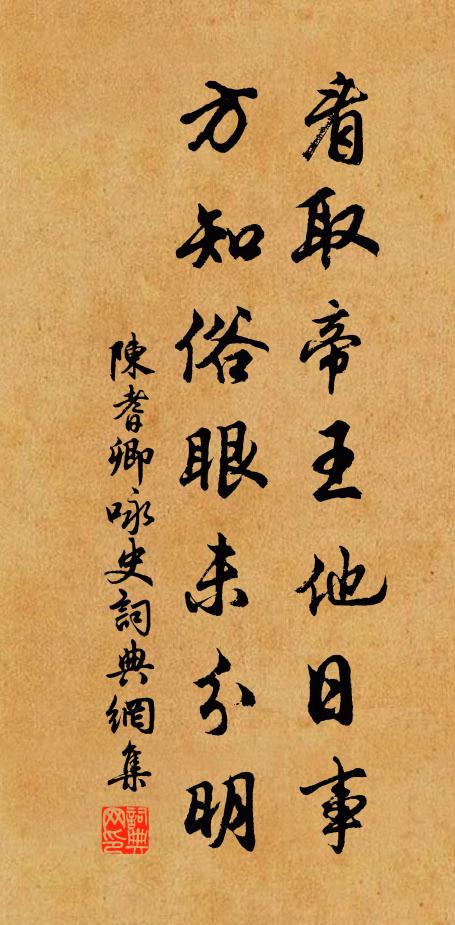 看取帝王他日事
方知俗眼未分明
陳耆卿咏史詞典網集
詞典网印